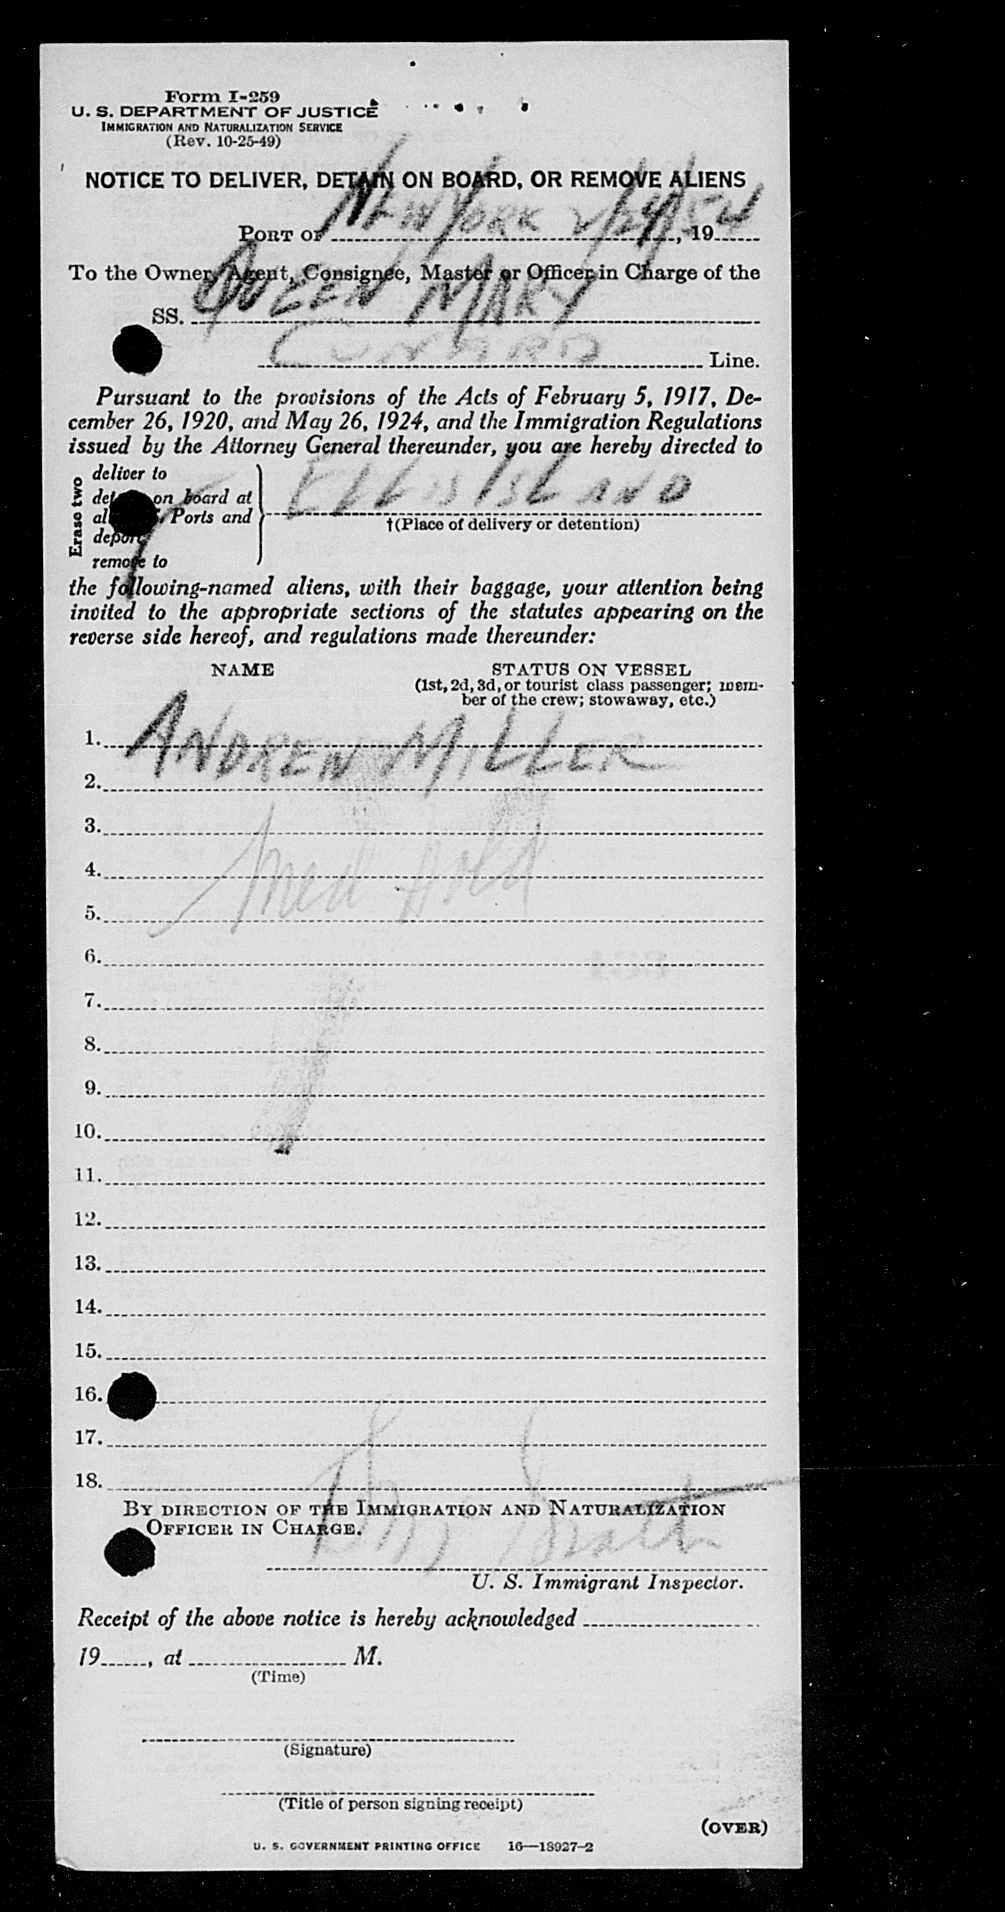 Form I-259
U. S. DEPARTMENT OF JUSTICE
IMMIGRATION AND NATURALIZATION SERVICE
(Rev. 10-25-49)
NOTICE TO DELIVER, DETAIN ON BOARD, OR REMOVE ALIENS
PORT OF NEW YORK 2/24/54, 19
To the Owner, Agent, Consignee, Master or Officer in Charge of the
SS. QUEEN MARY
CUNARD Line.
Pursuant to the provisions of the Acts of February 5, 1917, De-
cember 26, 1920, and May 26, 1924, and the Immigration Regulations
issued by the Attorney General thereunder, you are hereby directed to
Erase two
deliver to
on board at
Ports and
deport
remove to
ELLIS ISLAND
†(Place of delivery or detention)
the following-named aliens, with their baggage, your attention being
invited to the appropriate sections of the statutes appearing on the
reverse side hereof, and regulations made thereunder:
NAME STATUS ON VESSEL
(1st, 2d, 3d, or tourist class passenger; mem-
ber of the crew; stowaway, etc.)
1. ANDREW MILLER
2.
3.
4. Med Hold
5.
6.
7.
8.
9.
10.
11.
12.
13.
14.
15.
16.
17.
18.
BY DIRECTION OF THE IMMIGRATION AND NATURALIZATION
OFFICER IN CHARGE.
U. S. Immigrant Inspector.
Receipt of the above notice is hereby acknowledged
19, at M.
(Time)
(Signature)
(Title of person signing receipt)
(OVER)
U. S. GOVERNMENT PRINTING OFFICE 16—18927-2